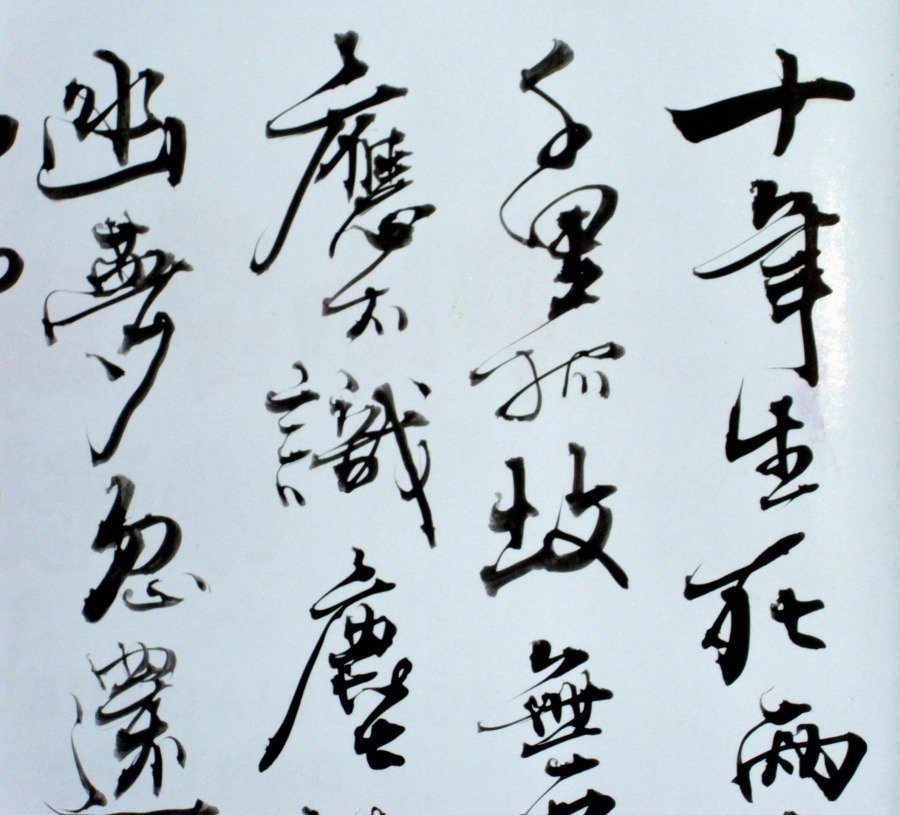 十年生死兩
千里孤坟無
應不識塵
幽夢忽還